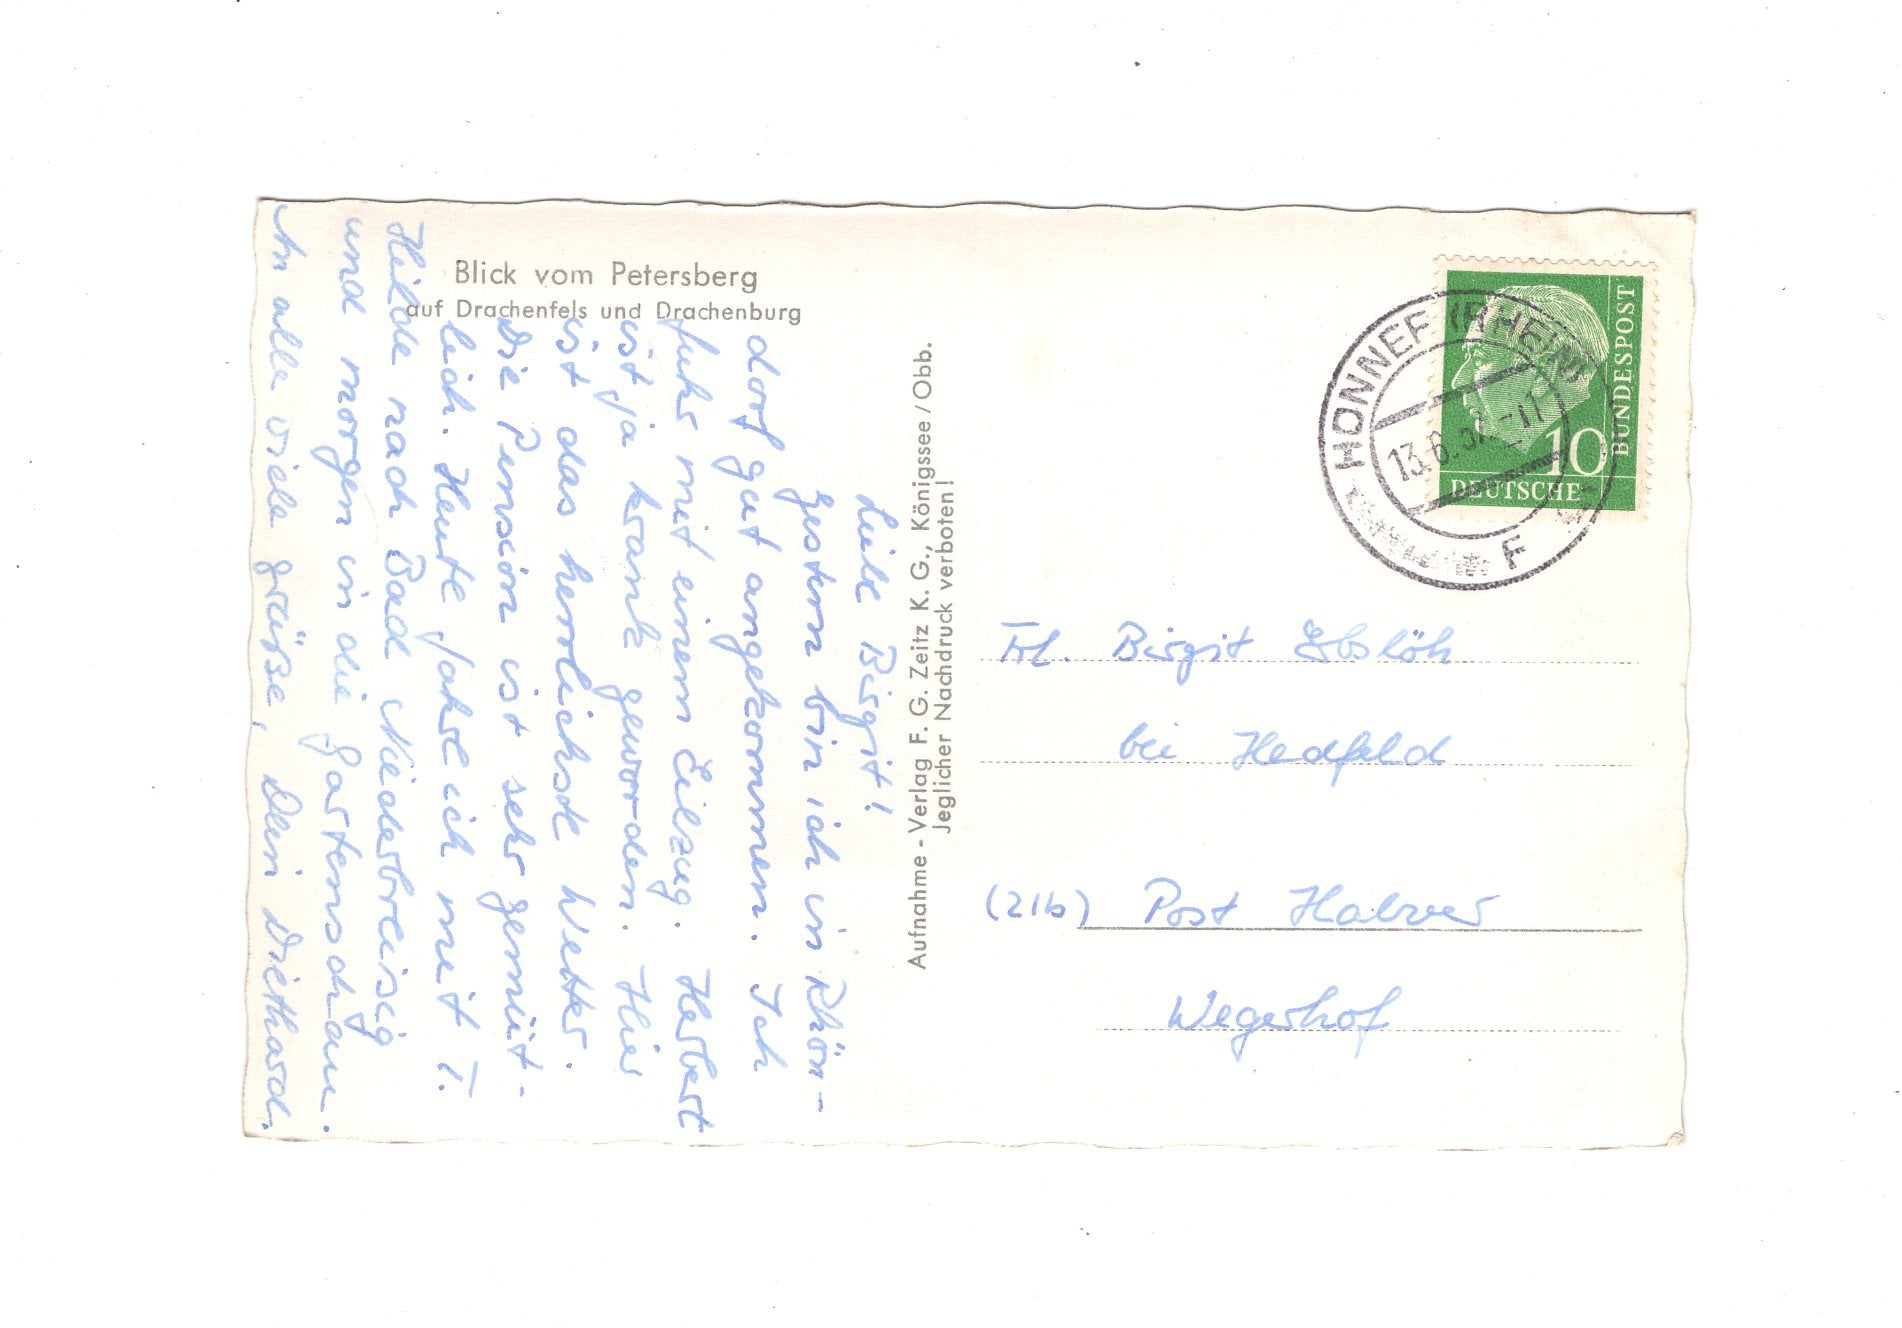 Blick vom Petersberg
auf Drachenfels und Drachenburg
Liebe Birgit!
Gestern bin ich in Rhön-
dorf gut angekommen. Ich
fuhr mit einem Eilzug. Herbert
ist ja krank geworden. Hier
ist das herrlichste Wetter.
Die Pension ist sehr gemüt-
lich. Heute fahre ich mit T.
Hilde nach Bad Niederbreisig
und morgen in die Gartenschau.
An alle viele Grüße, Dein Diethard.
Aufnahme - Verlag F. G. Zeitz K. G., Königssee / Obb.
Jeglicher Nachdruck verboten!
HONNEF (RHEIN)
13.6.57.-11
F
BUNDESPOST
10
DEUTSCHE
Frl. Birgit Ebslöh
bei Hedfeld
(21b) Post Halver
Wegerhof